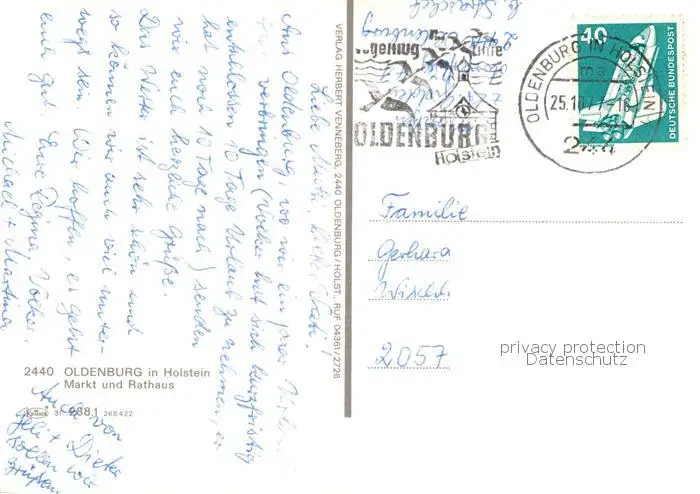 Liebe Mutti, lieber Vati.
Aus Oldenburg, wo wir ein paar
verbringen (Volker hat sich kurzfristig
entschlossen 10 Tage Urlaub zu nehmen, er
hat noch 10 Tage nach) senden
wir euch herzliche Grüße.
Das Wetter ist sehr schön und
so können wir auch viel unter-
wegs sein. Wir hoffen, es geht
euch gut Eure Regina, Volker,
Michael + Martina
Auch von
+ Dieter
sollen wir
grüßen.
2440 OLDENBURG in Holstein
Markt und Rathaus
Krüger 31. 2381 268422
VERLAG HERBERT VENNEBERG, 2440 OLDENBURG/HOLST., RUF 04361/2726
Vogelfluglinie
OLDENBURG
Holstein
OLDENBURG IN HOLSTEIN
ma
25.10.77-18
2440
40
DEUTSCHE BUNDESPOST
Familie
Gerhard
2057
privacy protection
Datenschutz